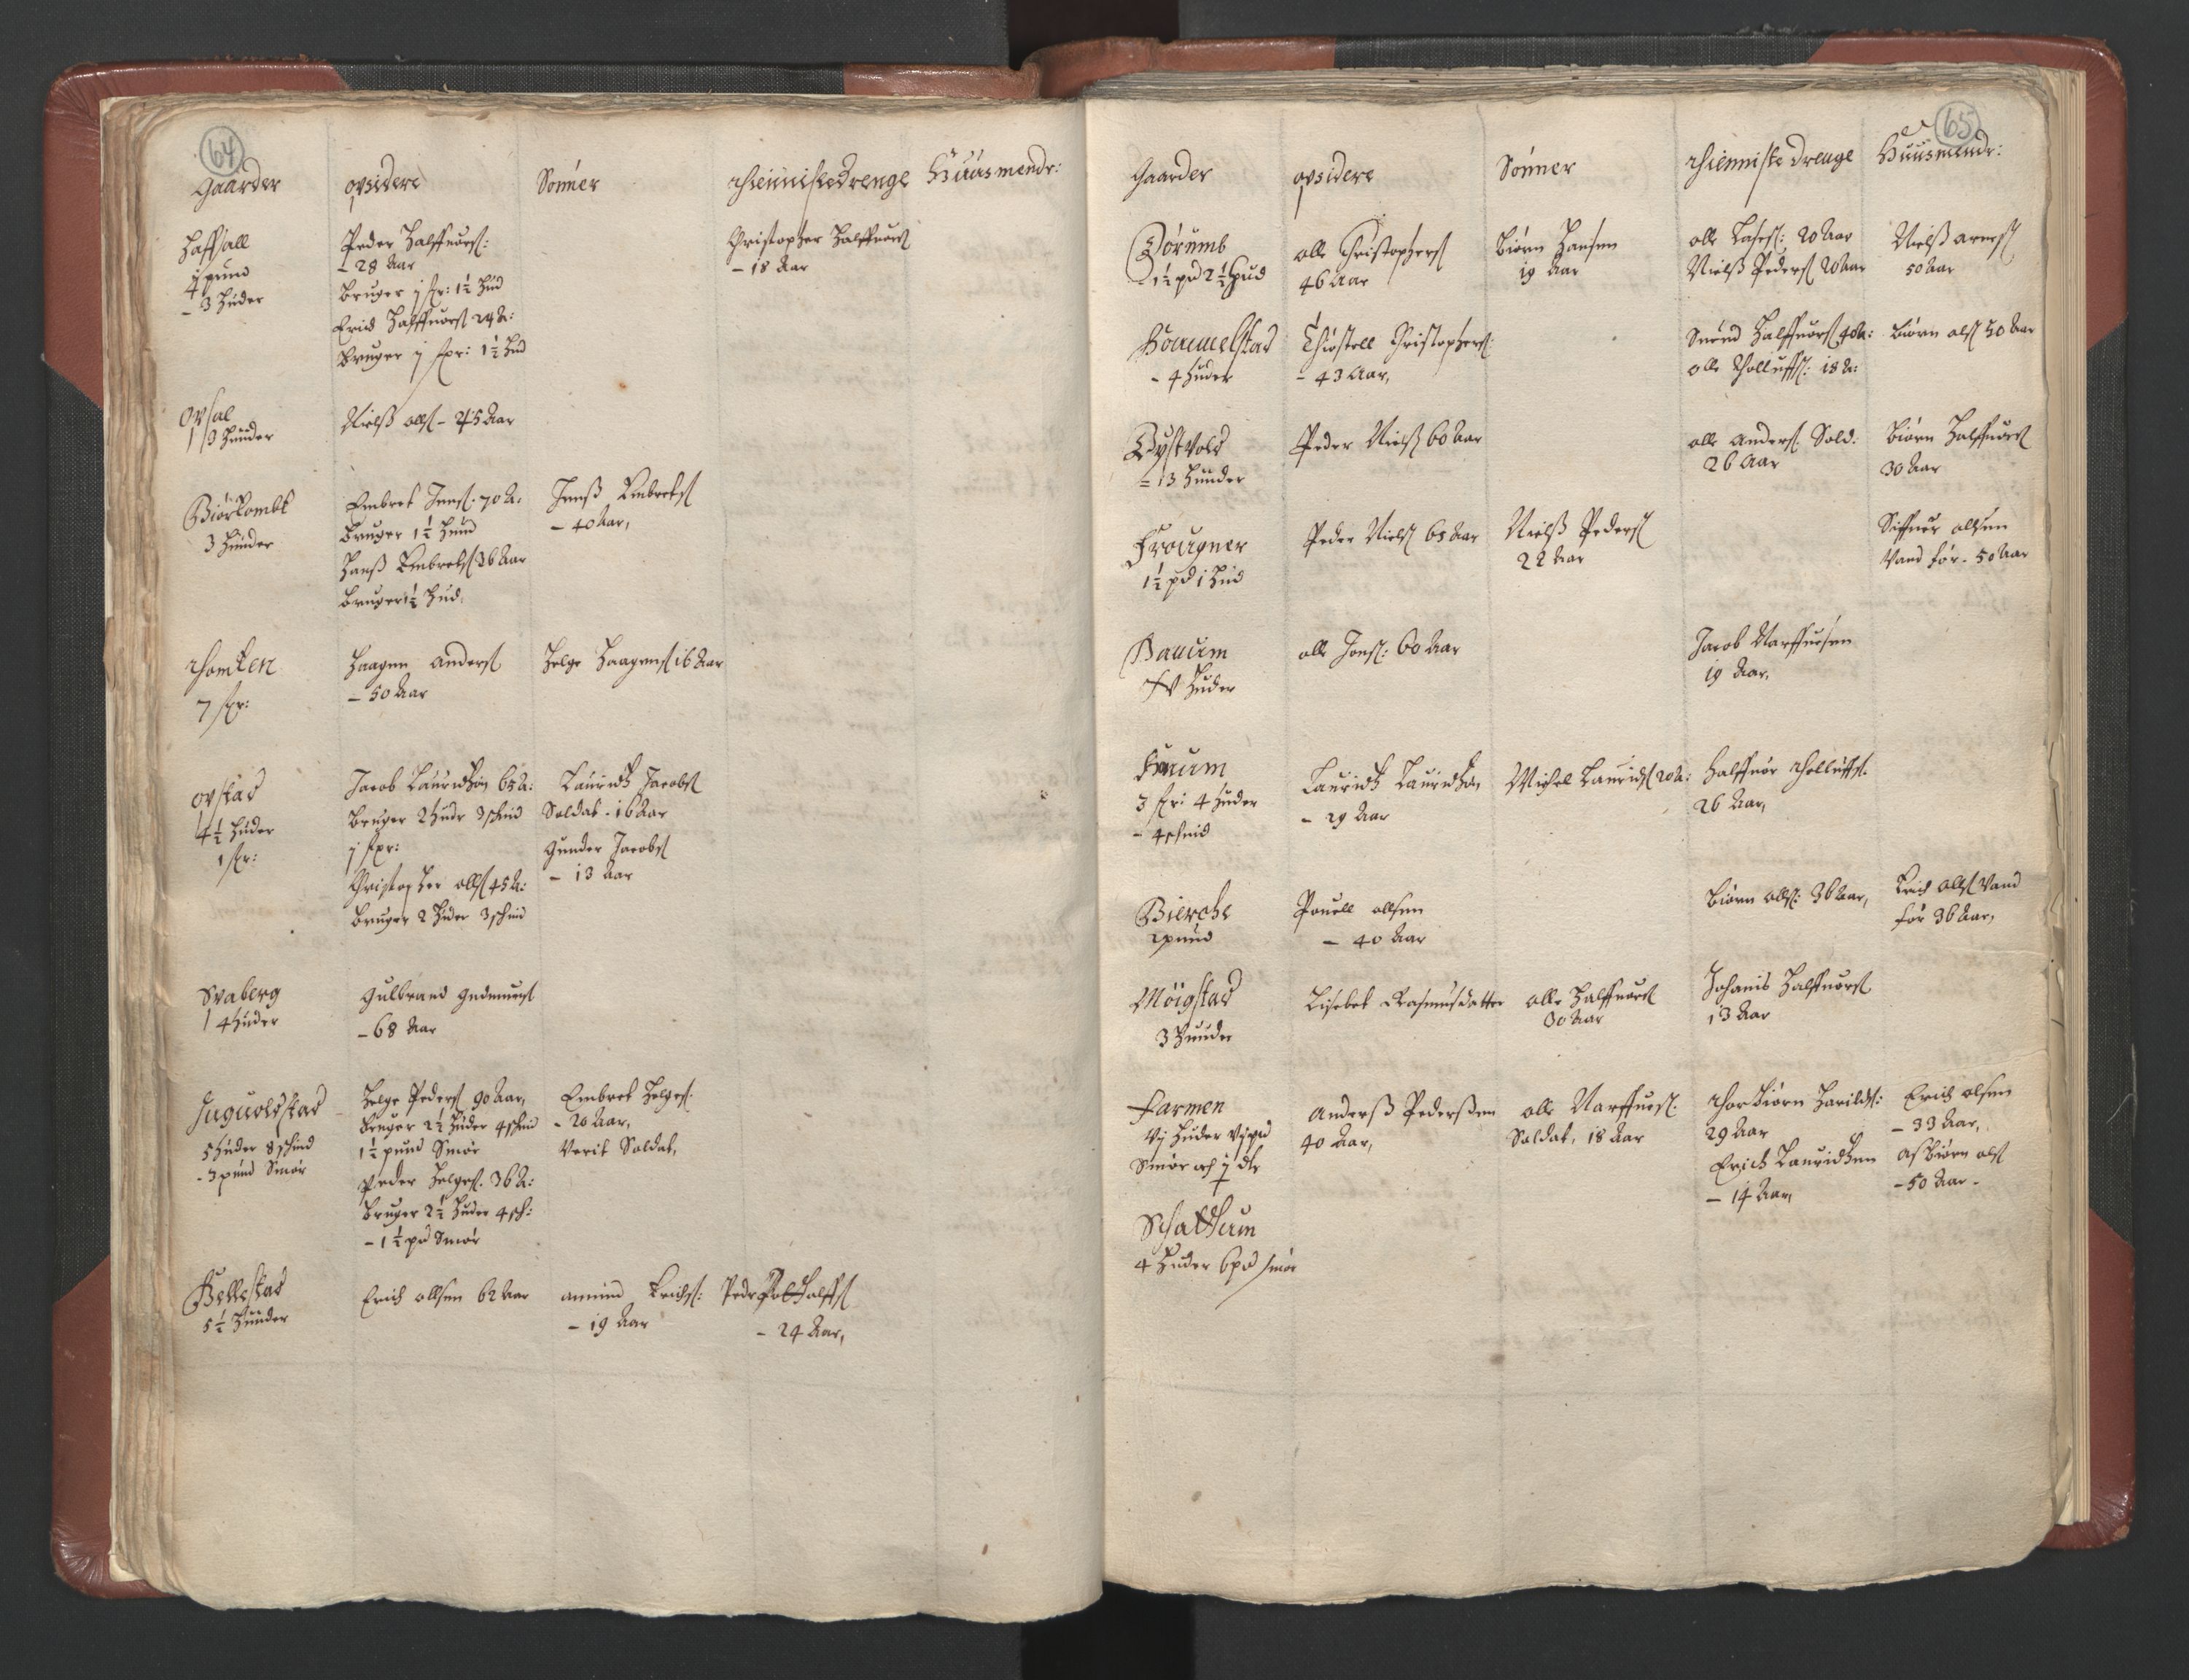 64
Gaarder opsidere Sönner thienniste drenge Huusmendr:
Haffsall
1 pund
- 3 huder
Peder Halffuors:
- 28 Aar
bruger j spr: 1½ hud
Erich Halffuors 24 A:
bruger j spr: 1½ hud
Christopher Halffuors
- 18 Aar
Opsal
3 huder
Nielß olls - 45 Aar
Biörkombt
3 huder
Embret Jens: 70 A:
bruger 1½ hud
Hanß Embrets 36 Aar
bruger 1½ hud
Jenß Embrets
- 40 Aar,
thomten
7 spr:
Haagen Anders
- 50 Aar
Helge Haagens 16 Aar
opstad
4½ huder
1 spr:
Jacob Lauridtzøn 65 A:
bruger 2 hudr 3 schind
j spr:
Christopher olls 45 A:
bruger 2 huder 3 schind
Lauridtz Jacobs
Soldat - 16 Aar
Gunder Jacobs
- 13 Aar
Svaberg
4 huder
Gulbrand Gudmuns
- 68 Aar
Inguoldstad
5 huder 8 schind
- 3 pund Smör
Helge Peders 90 Aar,
bruger 2½ huder 4 schind
1½ pund Smör
Peder Helges. 36 A:
bruger 2½ huder 4 sch:
- 1½ pd Smör
Embret Helges.
- 20 Aar,
verit Soldat,
Bellestad
5½ huder
Erich ollsen 62 Aar
Amund Erichs:
- 19 Aar
Peder
- 24 Aar,
65
Gaarder opsidere Sönner thienniste drenge Huusmendr:
1½ pd 2½ hud
olle Christophers
46 Aar
biörn Hansen
19 Aar
olle Lases: 20 Aar
Nielß Peders 20 Aar
Nielß Arnes
50 Aar
Hommelstad
- 4 huder
Thiostell Christophers:
- 43 Aar,
Suend Halffuors 40 A:
olle Tholluffs: 18 A:
biörn ols 50 Aar
Bystvold
- 13 huder
Peder Nielß 60 Aar
olle Anders. Sold:
26 Aar
biörn Halffuors
30 Aar
Frougner
1½ pd 1 hud
Peder Niels 65 Aar
Nielß Peders
22 Aar
Siffuer ollsen
Vand för - 50 Aar
Bauum
huder
olle Jons: 60 Aar
Jacob Narffuesen
19 Aar,
3 spr: 4 huder
- 4 schind
Lauridtz Lauridtzøn
- 29 Aar
Michel Laurids 20 A:
Halffuor tholluffs.
26 Aar,
Bierche
2 pund
Pouell ollsen
- 40 Aar
biörn olls: 36 Aar,
Erich olls Vand
för 36 Aar,
Möigstad
3 huder
Lisebet Rasmusdatter
olle Halffuors
30 Aar
Johanis Halffuors
13 Aar
Farmen
Vj huder Vj pd
Smör och
Anderß Pederßen
40 Aar,
olle Narffues.
Soldat, 18 Aar
thorbiörn Harilds:
29 Aar
Erich Lauridtzen
- 14 Aar,
Erich olsen
- 33 Aar,
Asbiörn ols
- 50 Aar -
Schattum
4 huder 6 pd smör